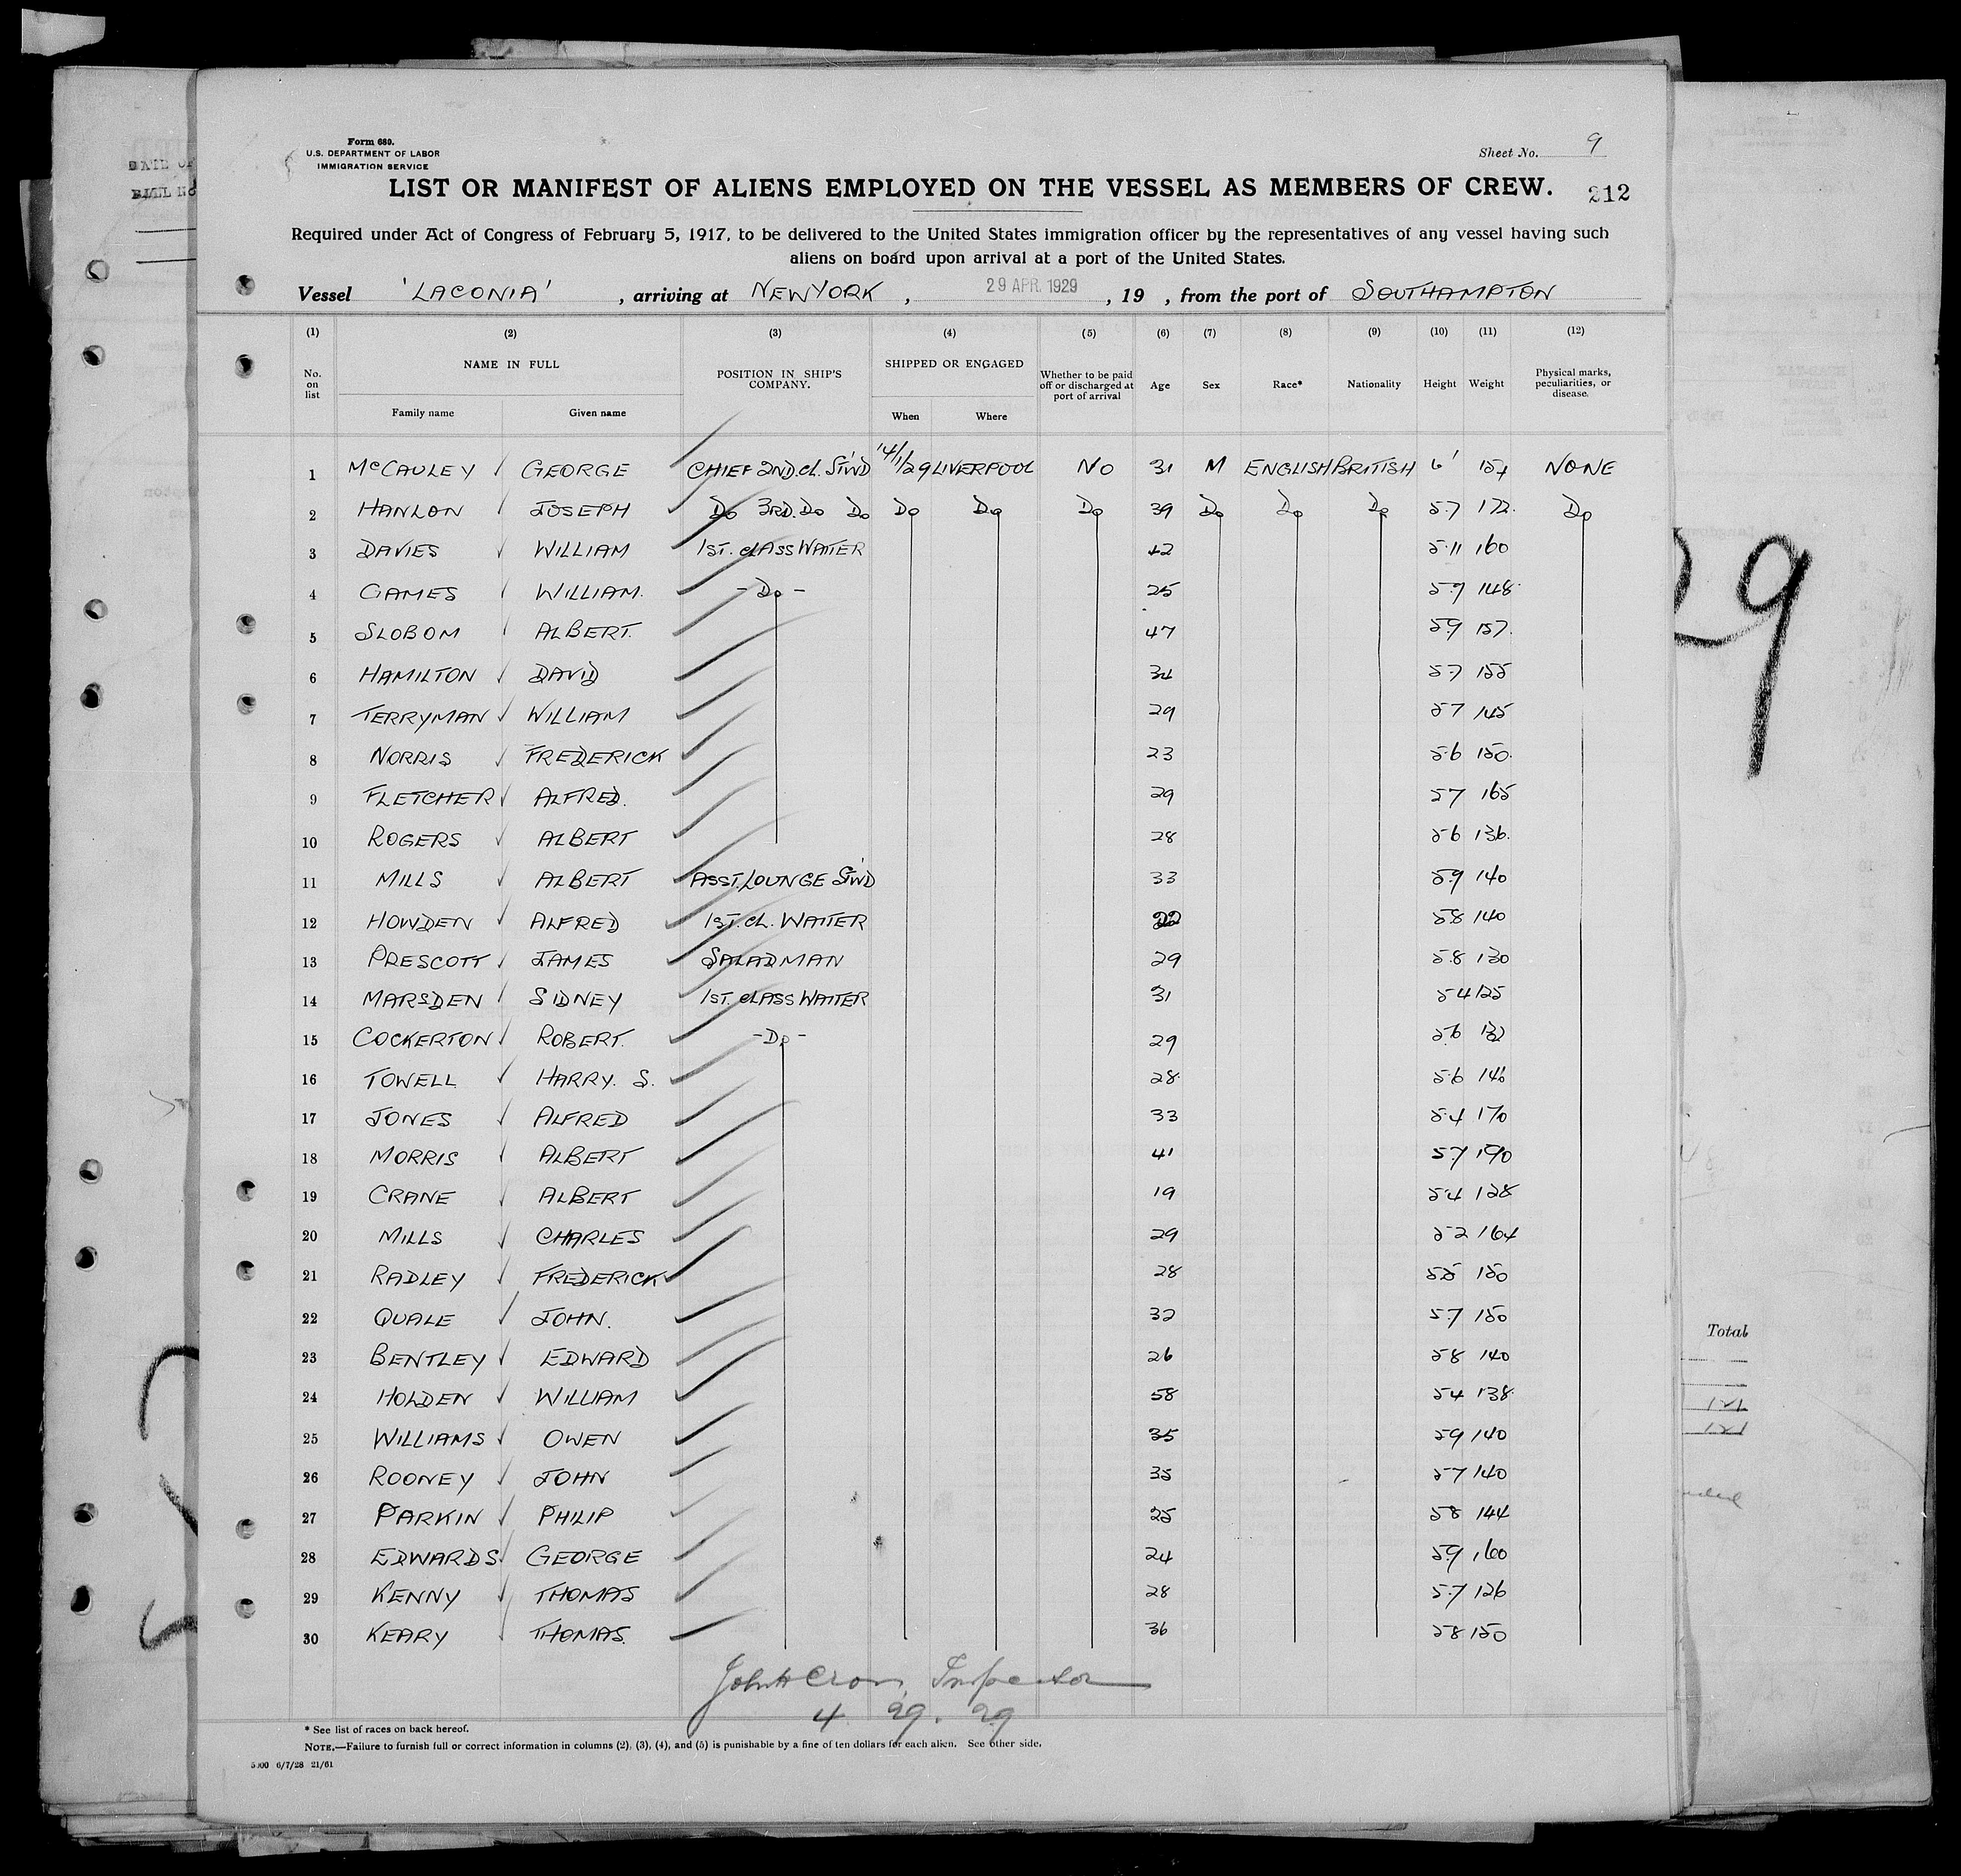 Form 680.
U.S. DEPARTMENT OF LABOR
IMMIGRATION SERVICE
Sheet No. 9
LIST OR MANIFEST OF ALIENS EMPLOYED ON THE VESSEL AS MEMBERS OF CREW.
212
Required under Act of Congress of February 5, 1917, to be delivered to the United States immigration officer by the representatives of any vessel having such
aliens on board upon arrival at a port of the United States.
Vessel 'LACONIA', arriving at NEW YORK, 29 APR. 1929, 19 , from the port of SOUTHAMPTON
(1) (2) (3) (4) (5) (6) (7) (8) (9) (10) (11) (12)
No. on list NAME IN FULL Family name Given name POSITION IN SHIP'S COMPANY. SHIPPED OR ENGAGED When Where Whether to be paid off or discharged at port of arrival Age Sex Race* Nationality Height Weight Physical marks, peculiarities, or disease.
1 McCAULEY GEORGE CHIEF 2ND. CL. ST'WD 14/1/29 LIVERPOOL NO 31 M ENGLISH BRITISH 6' 154 NONE
2 HANLON JOSEPH Do 3RD. Do Do Do Do Do 39 Do Do Do 5.7 172. Do
3 DAVIES WILLIAM 1ST. CLASS WAITER 42 5.11 160
4 GAMES WILLIAM. - Do - 25 5.7 148
5 SLOBOM ALBERT. 47 5.9 157.
6 HAMILTON DAVID 34 5.7 155
7 TERRYMAN WILLIAM 29 5.7 145
8 NORRIS FREDERICK 23 5.6 150.
9 FLETCHER ALFRED. 29 5.7 165
10 ROGERS ALBERT 28 5.6 136.
11 MILLS ALBERT ASST. LOUNGE ST'WD 33 5.9 140
12 HOWDEN ALFRED 1ST. CL. WAITER 22 5.8 140
13 PRESCOTT JAMES SALADMAN 29 5.8 130
14 MARSDEN SIDNEY 1ST. CLASS WAITER 31 5.4 125
15 COCKERTON ROBERT. - Do - 29 5.6 132
16 TOWELL HARRY. S. 28 5.6 146
17 JONES ALFRED 33 5.4 170
18 MORRIS ALBERT 41 5.7 190
19 CRANE ALBERT 19 5.4 128
20 MILLS CHARLES 29 5.2 164
21 RADLEY FREDERICK 28 5.5 150
22 QUALE JOHN. 32 5.7 150
23 BENTLEY EDWARD 26 5.8 140
24 HOLDEN WILLIAM 58 5.4 138
25 WILLIAMS OWEN 35 5.9 140
26 ROONEY JOHN 35 5.7 140
27 PARKIN PHILIP 25 5.8 144
28 EDWARDS GEORGE 24 5.9 160
29 KENNY THOMAS 28 5.7 126
30 KEARY THOMAS. 36 5.8 150
John H Cron, Inspector
4 29. 29
* See list of races on back hereof.
NOTE.—Failure to furnish full or correct information in columns (2), (3), (4), and (5) is punishable by a fine of ten dollars for each alien. See other side.
5000 6/7/28 21/61
9
Total
121
121